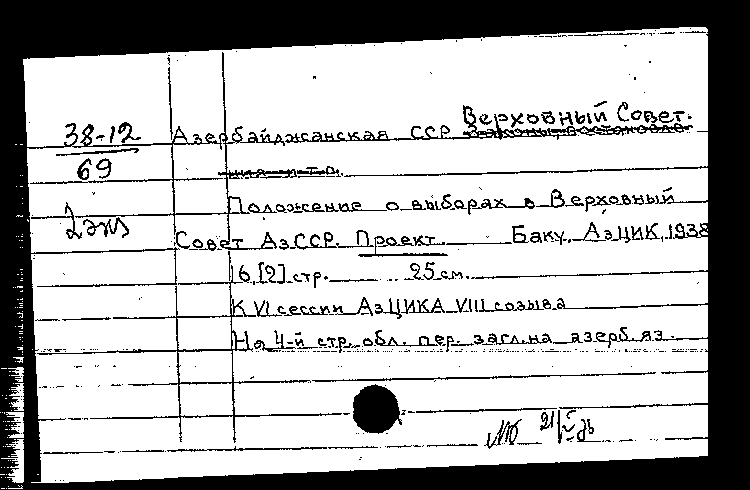 38-12
69
2 экз
Верховный Совет.
Азербайджанская ССР Законы, постановле-
ния и т.п.
Положение о выборах в Верховный
Совет АзССР. Проект. Баку, АзЦИК, 1938
16, [2] стр. 25 см.
К VI сессии АзЦИКА VIII созыва
На 4-й стр. обл. пер. загл. на азерб. яз.
21/V